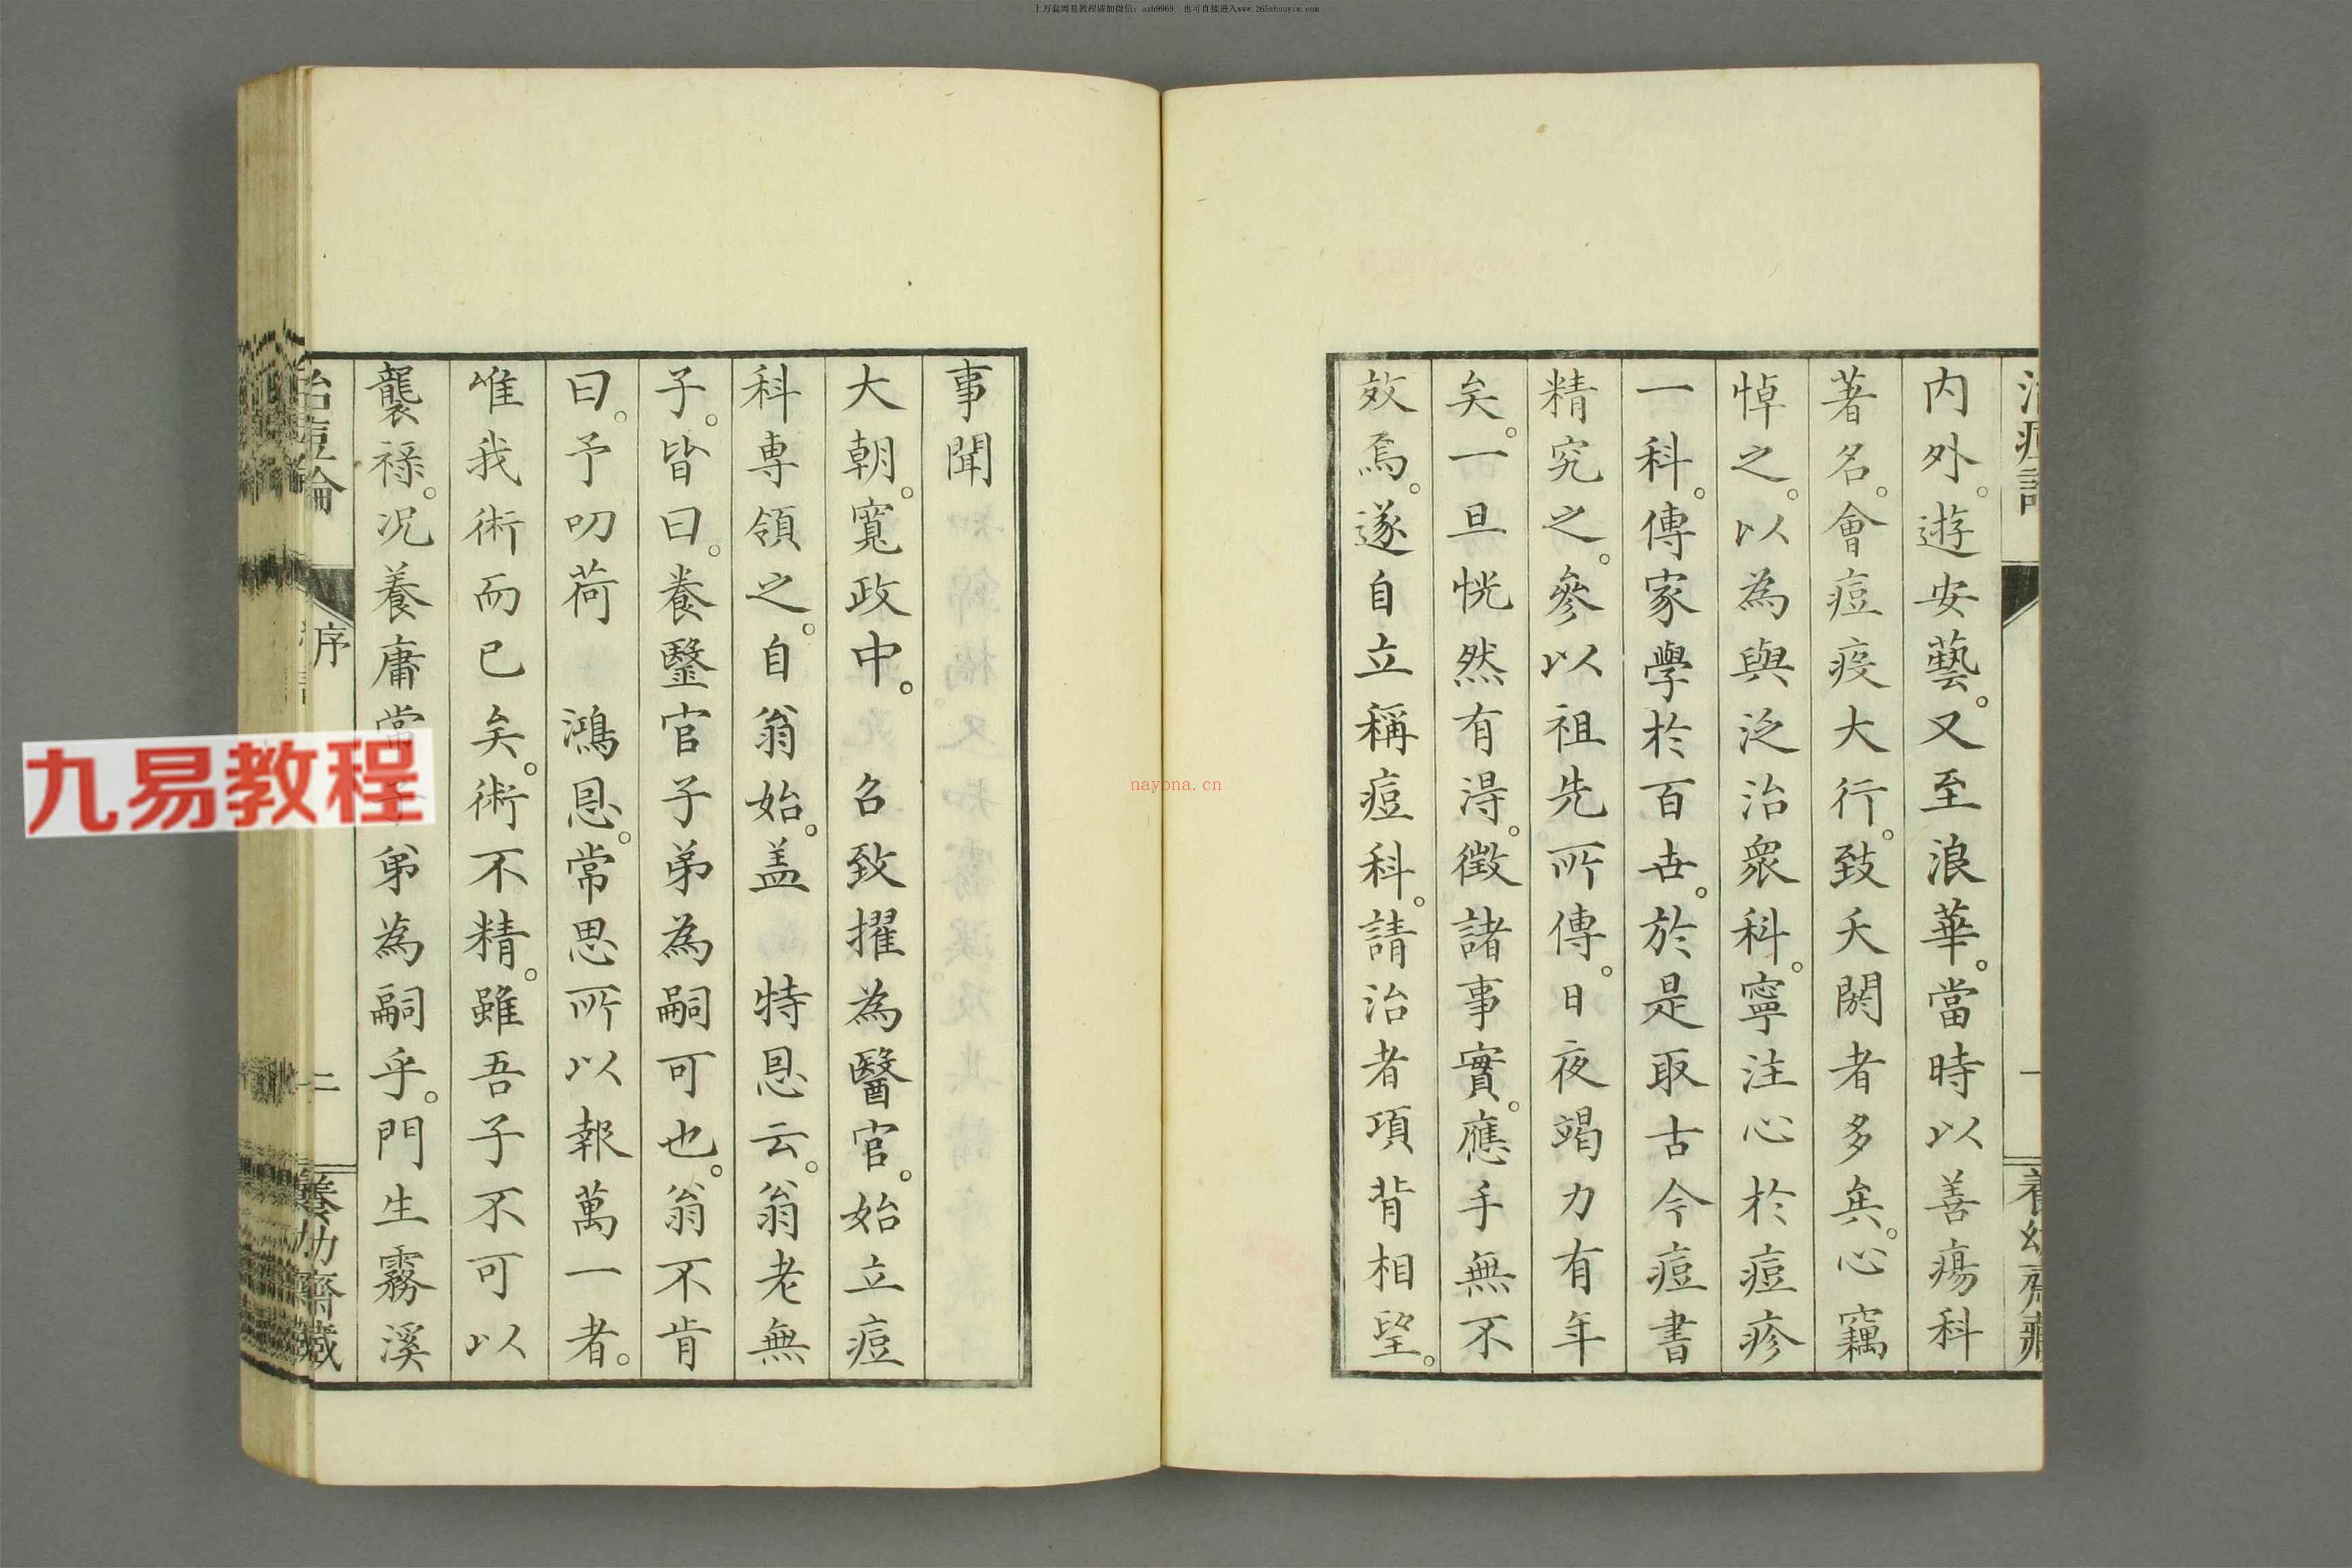 上万套周易教程请加微信：azh9969　也可直接进入www.265zhouyiw.com
内外。遊安藝。又至浪華。當時以善瘍科
著名。會痘疫大行。致夭閼者多矣。心竊
悼之。以為與泛治衆科。寧注心於痘疹
一科。傳家學於百世。於是取古今痘書
精究之。參以祖先所傳。日夜竭力有年
矣。一旦恍然有得。徵諸事實。應手無不
效焉。遂自立稱痘科。請治者項背相望。
事聞
大朝。寬政中。 召致擢為醫官。始立痘
科専領之。自翁始。盖 特恩云。翁老無
子。皆曰。養醫官子弟為嗣可也。翁不肯
曰。予叨荷 鴻恩。常思所以報萬一者。
唯我術而已矣。術不精。雖吾子不可以
襲祿。况養庸常子弟為嗣乎。門生霧溪
治痘論
序
二
養幼齋藏
九易教程
nayona.cn